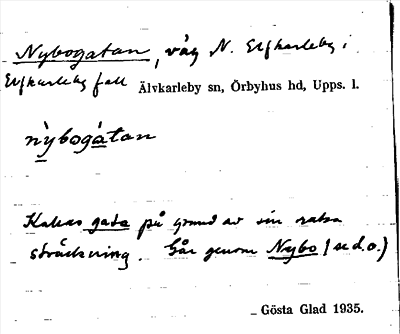 Nybogatan, väg N. Elfkarleby i
Elfkarleby fall Älvkarleby sn, Örbyhus hd, Upps. l.
ny̍bogàtan
Kallas gata på grund av sin raka
sträckning. Går genom Nybo (se d.o.)
Gösta Glad 1935.